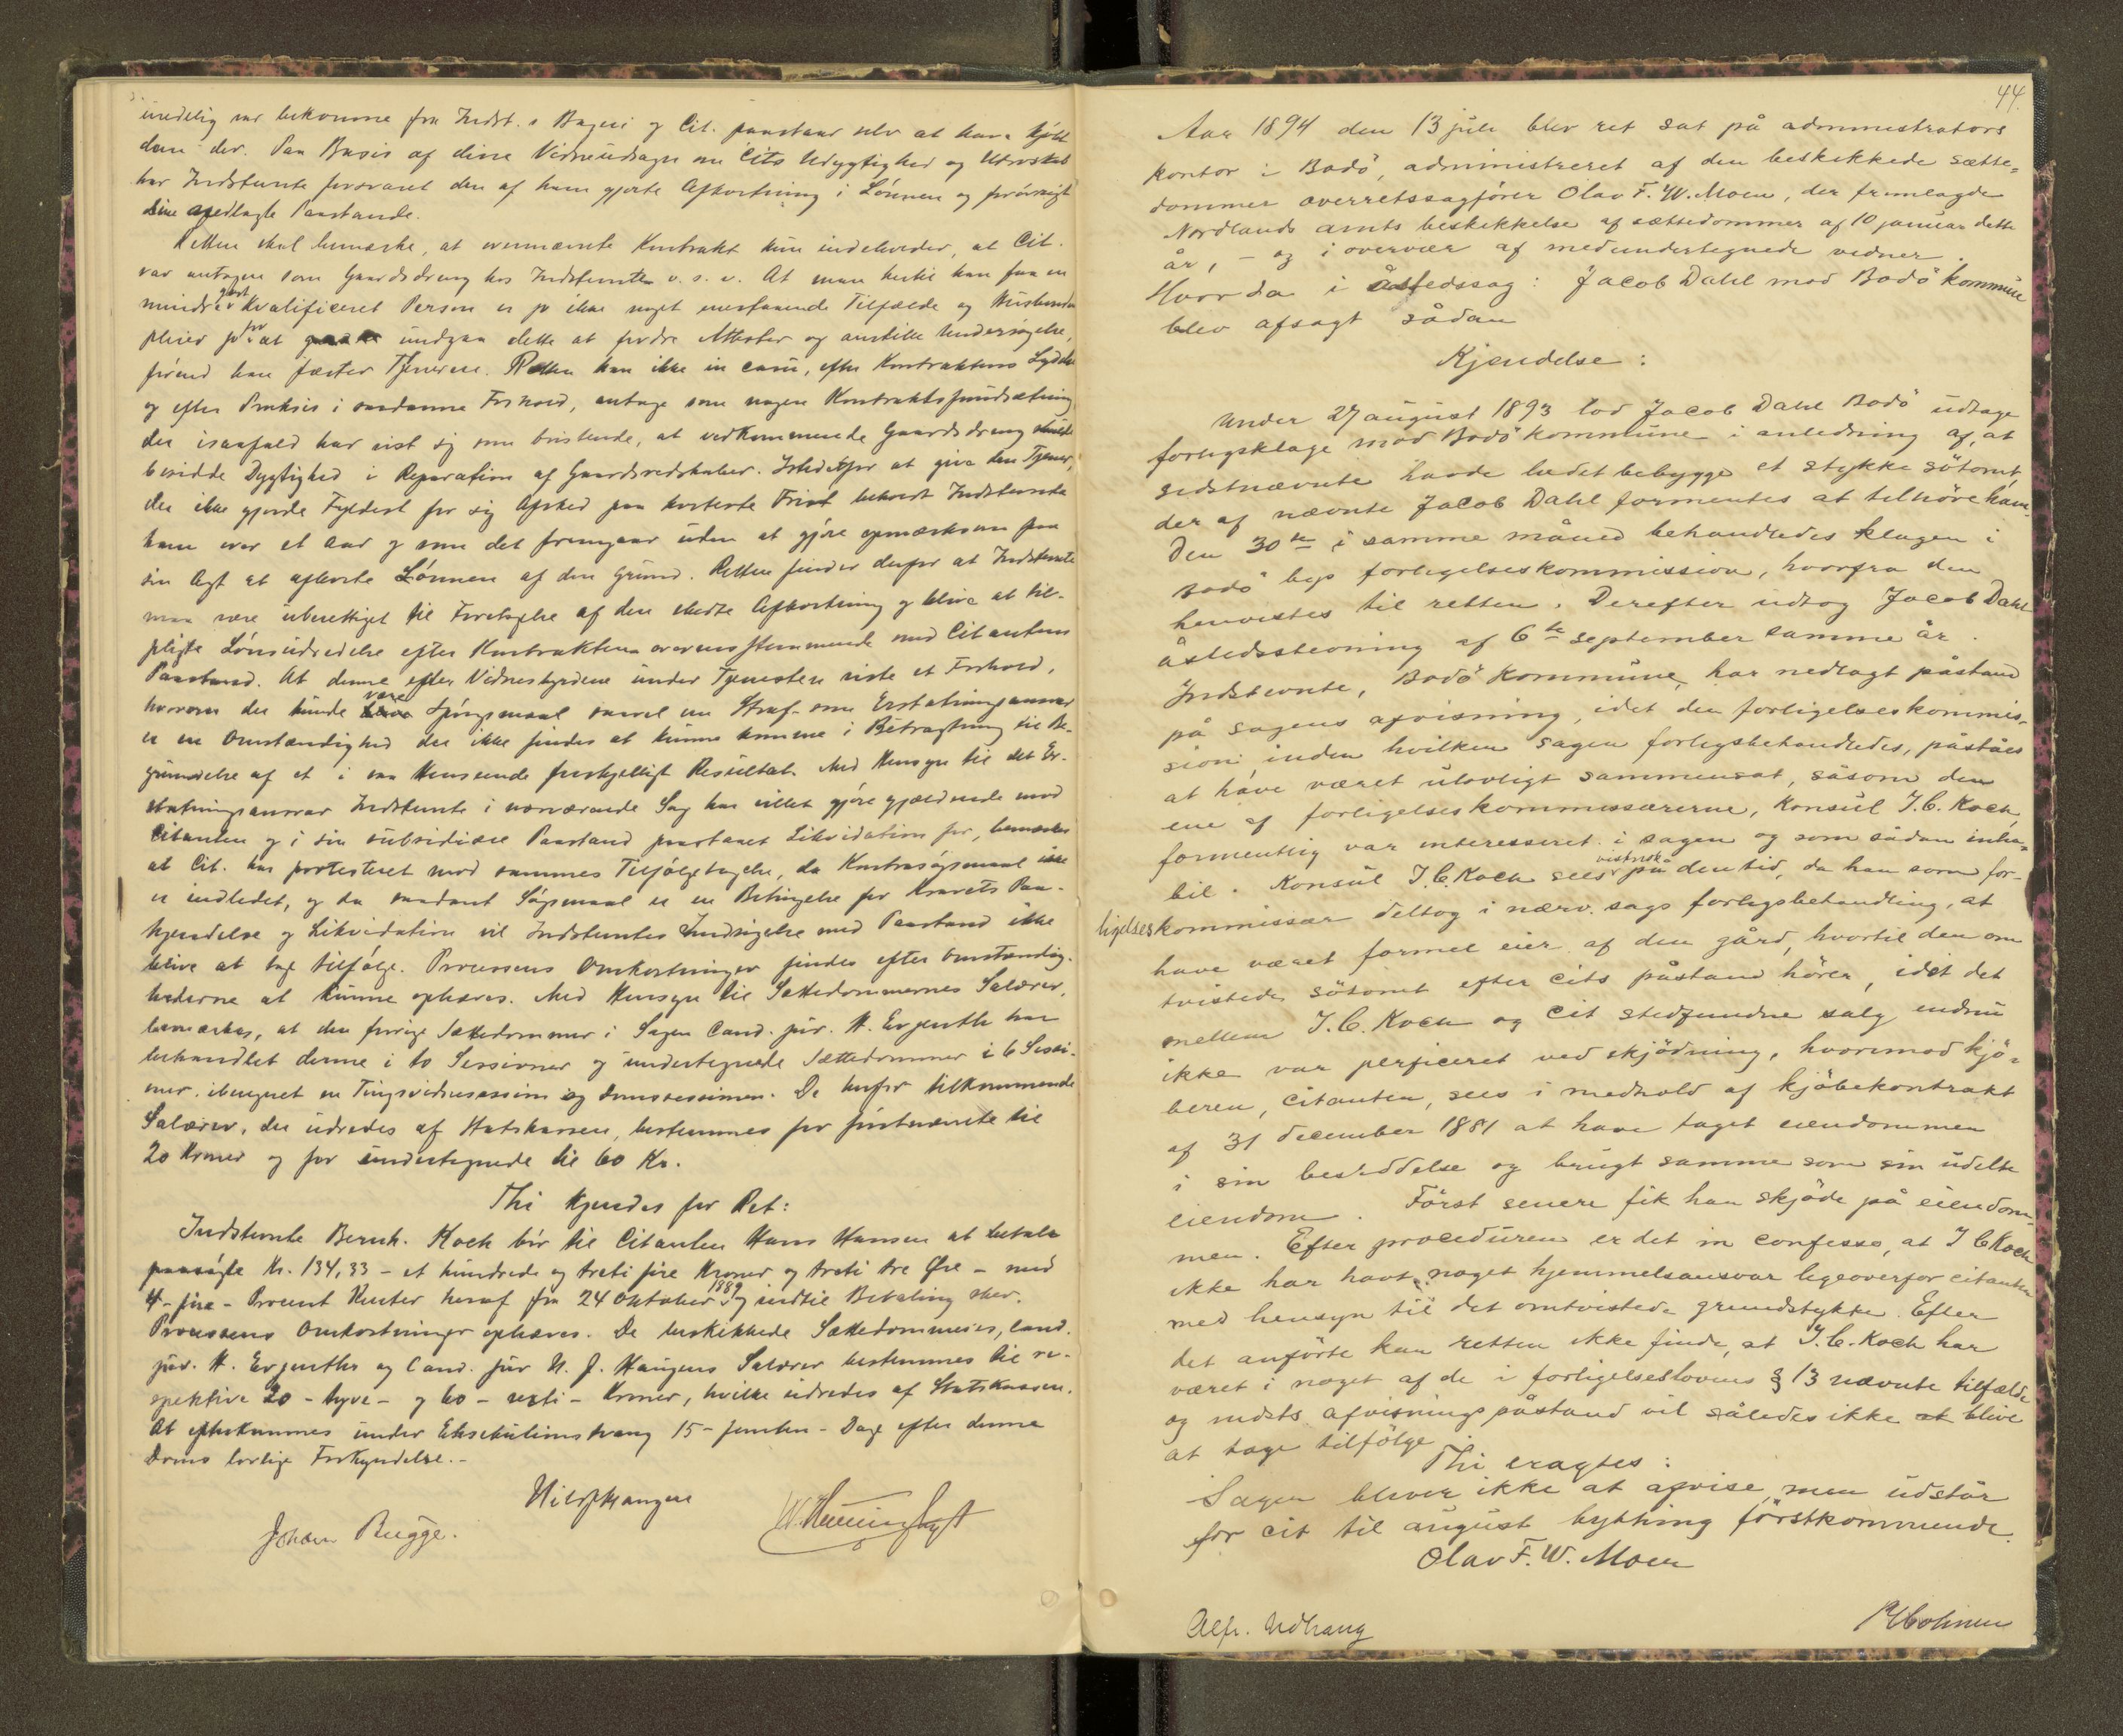 indelig var bekomme fra Indst.s Bageri og Cit. paastaar selv at have kjøbt
dem der. Paa Basis af disse Vidneudsagn om Cits Udygtighed og
har Indstevnte forsvaret den af ham gjorte Afkortning i Lønnen og forøvrigt
sine nedlagte Paastande.
Retten skal bemærke, at ovennævnte Kontrakt kun indeholder, at Cit.
var antagen som Gaardsdreng hos Indstevnte o. s. v. At man hertil kan faa en
mindre godt kvalificeret Person er jo ikke noget enestaaende Tilfælde og Husbonden
pleier jo for at undgaa dette at fordre Attester og anstille Undersøgelse,
førend han fæster Tjeneren. Retten kan ikke in casu, efter Kontraktens Lydende
og efter Praksis i saadanne Forhold, antage som nogen Kontraktsforudsætning
der isaafald har vist sig som bristende, at vedkommende Gaardsdreng skulde
besidde Dygtighed i Reparation af Gaardsredskaber. Istedetfor at give den Tjener,
der ikke gjorde Fyldest for sig Afsked paa korteste Frist beholdt Indstevnte
ham over et Aar og som det fremgaar uden at gjøre opmærksom paa
sin Agt at afkorte Lønnen af den Grund. Retten finder derfor at Indstevnte
maa være uberettiget til Foretagelse af den skedte Afkortning og blive at til-
pligte Lønsudredelse efter Kontrakten overensstemmende med Citantens
Paastand. At denne efter Vidnesbyrdene under Tjenesten viste et Forhold,
hvorom der kunde være Spørgsmaal saavel om Straf- som Erstatningsansvar
er en Omstændighed der ikke findes at kunne komme i Betragtning til Be-
grundelse af et i saa Henseende forskjelligt Resultat. Med Hensyn til det Er-
statningsansvar Indstevnte i nærværende Sag har villet gjøre gjældende mod
Citanten og i sin subsidiære Paastand paastaaet Likvidation for, bemærkes
at Cit. har protesteret mod sammes Tilfølgetagelse, da Kontrasøgsmaal ikke
er indledet, og da saadant Søgsmaal er en Betingelse for Kravets Paa-
kjendelse og Likvidation vil Indstevntes Indsigelse med Paastand ikke
blive at tage tilfølge. Processens Omkostninger findes efter Omstændig-
hederne at kunne ophæves. Med Hensyn til Sættedommernes Salærer,
bemærkes, at den forrige Sættedommer i Sagen Cand. jur. H. Evjenth har
behandlet denne i to Sessioner og undertegnede Sættedommer i 6 Sessio-
ner, iberegnet en Tingsvidnesession og Domssessionen. De herfor tilkommende
Salærer, der udredes af Statskassen, bestemmes for førstnævnte til
20 Kroner og for undertegnede til 60 Kr.
Thi kjendes for Ret:
Indstevnte Bernh. Koch bør til Citanten Hans Hansen at betale
paasøgte Kr. 134,33 - et hundrede og treti fire Kroner og treti tre Øre - med
4 - fire - Procent Renter heraf fra 24 Oktober 1889 og indtil Betaling sker.
Processens Omkostninger ophæves. De beskikkede Sættedommeres, Cand.
jur. H. Evjenths og Cand. jur N. J. Haugens Salærer bestemmes til re-
spektive 20 - tyve - og 60 - sexti - Kroner, hvilke udredes af Statskassen.
At efterkommes under Exekutionstvang 15 - femten - Dage efter denne
Doms lovlige Forkyndelse.-
Johan Bugge.
44.
Aar 1894 den 13 juli blev ret sat på administrators
kontor i Bodö, administreret af den beskikkede sætte-
dommer overretssagfører Olav F. W. Moen, der fremlagde
Nordlands amts beskikkelse af sættedommer af 10 januar dette
år, - og i overvær af medundertegnede vidner.
Hvor da i åstedssag: Jacob Dahl mod Bodö kommune
blev afsagt sådan
Kjendelse:
Under 27 august 1893 lod Jacob Dahl Bodö udtage
forligsklage mod Bodö kommune i anledning af, at
sidstnævnte havde ladet bebygge et stykke sötomt,
der af nævnte Jacob Dahl formentes at tilhöre ham.
Den 30te i samme måned behandledes klagen i
Bodö bys forligelseskommission, hvorfra den
henvistes til retten. Derefter udtog Jacob Dahl
åstedsstevning af 6te september samme år.
Indstevnte, Bodö kommune, har nedlagt påstand
på sagens afvisning, idet den forligelseskommis-
sion, inden hvilken sagen forligsbehandledes, påståes
at have været ulovligt sammensat, såsom den
ene af forligelseskommissærerne, konsul J. C. Koch,
formentlig var interesseret i sagen og som sådan inha-
bil. Konsul J. C. Koch sees vistnok på den tid, da han som for-
ligelseskommissær deltog i nærv. sags forligsbehandling, at
have været formel eier af den gård, hvortil den om
tvistede sötomt efter cits påstand hörer, idet det
mellem J. C. Koch og cit stedfundne salg endnu
ikke var perficeret ved skjödning, hvorimod kjö-
beren, citanten, sees i medhold af kjöbekontrakt
af 31 december 1881 at have taget eiendommen
i sin besiddelse og brugt samme som sin udelte
eiendom. Först senere fik han skjöde på eiendom-
men. Efter proceduren er det in confesso, at J C Koch
ikke har havt noget hjemmelsansvar ligeoverfor citanten
med hensyn til det omtvistede grundstykke. Efter
det anförte kan retten ikke finde, at J. C. Koch har
været i noget af de i forligelseslovens § 13 nævnte tilfælde
og indsts afvisningspåstand vil således ikke blive
at tage tilfölge.
Thi eragtes:
Sagen bliver ikke at afvise, men udstår
for cit til august bything förstkommende.
Olav F. W. Moen
Alfr. Udhaug